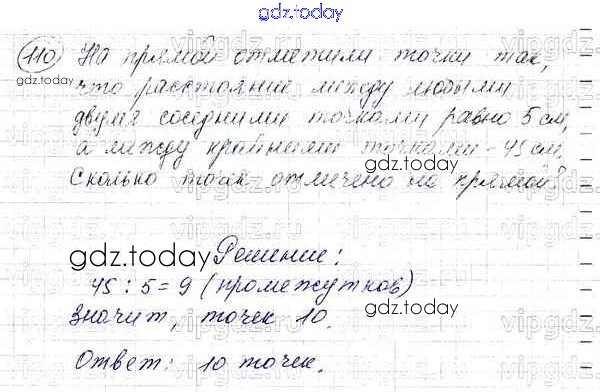 gdz.today
110 На прямой отметили точки так,
что расстояние между любыми
двумя соседними точками равно 5 см,
а между крайними точками - 45 см.
gdz.today
Сколько точек отмечено на прямой?
gdz.today Решение:
45 : 5 = 9 (промежутков)
gdz.today
Значит, точек 10.
Ответ: 10 точек.